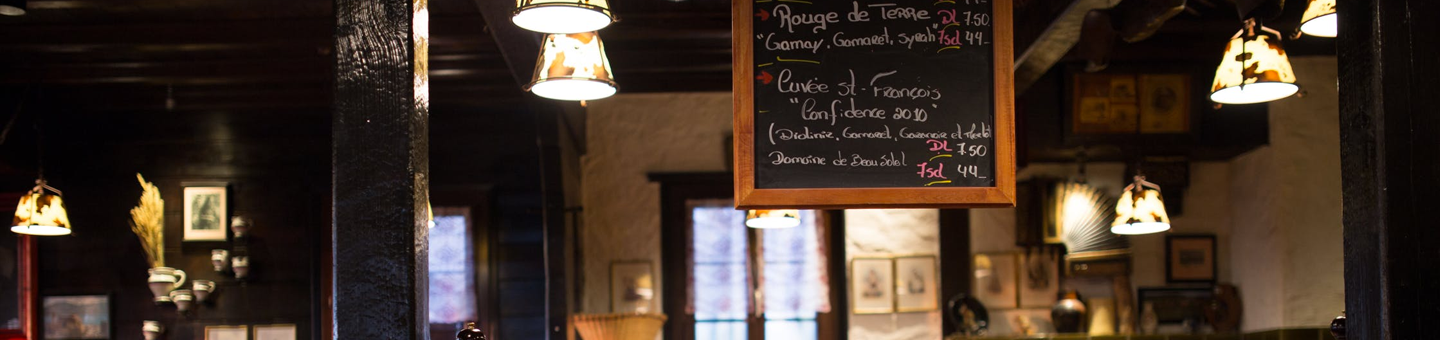 Rouge de Terre DL 7.50
"Gamay, Gamaret, Syrah" 7sd 44_
Cuvée St-François
"Confidence 2010"
(Diolinir, Gamaret, Garanoir et
DL 7.50
Domaine de Beau Soleil 7sd 44_